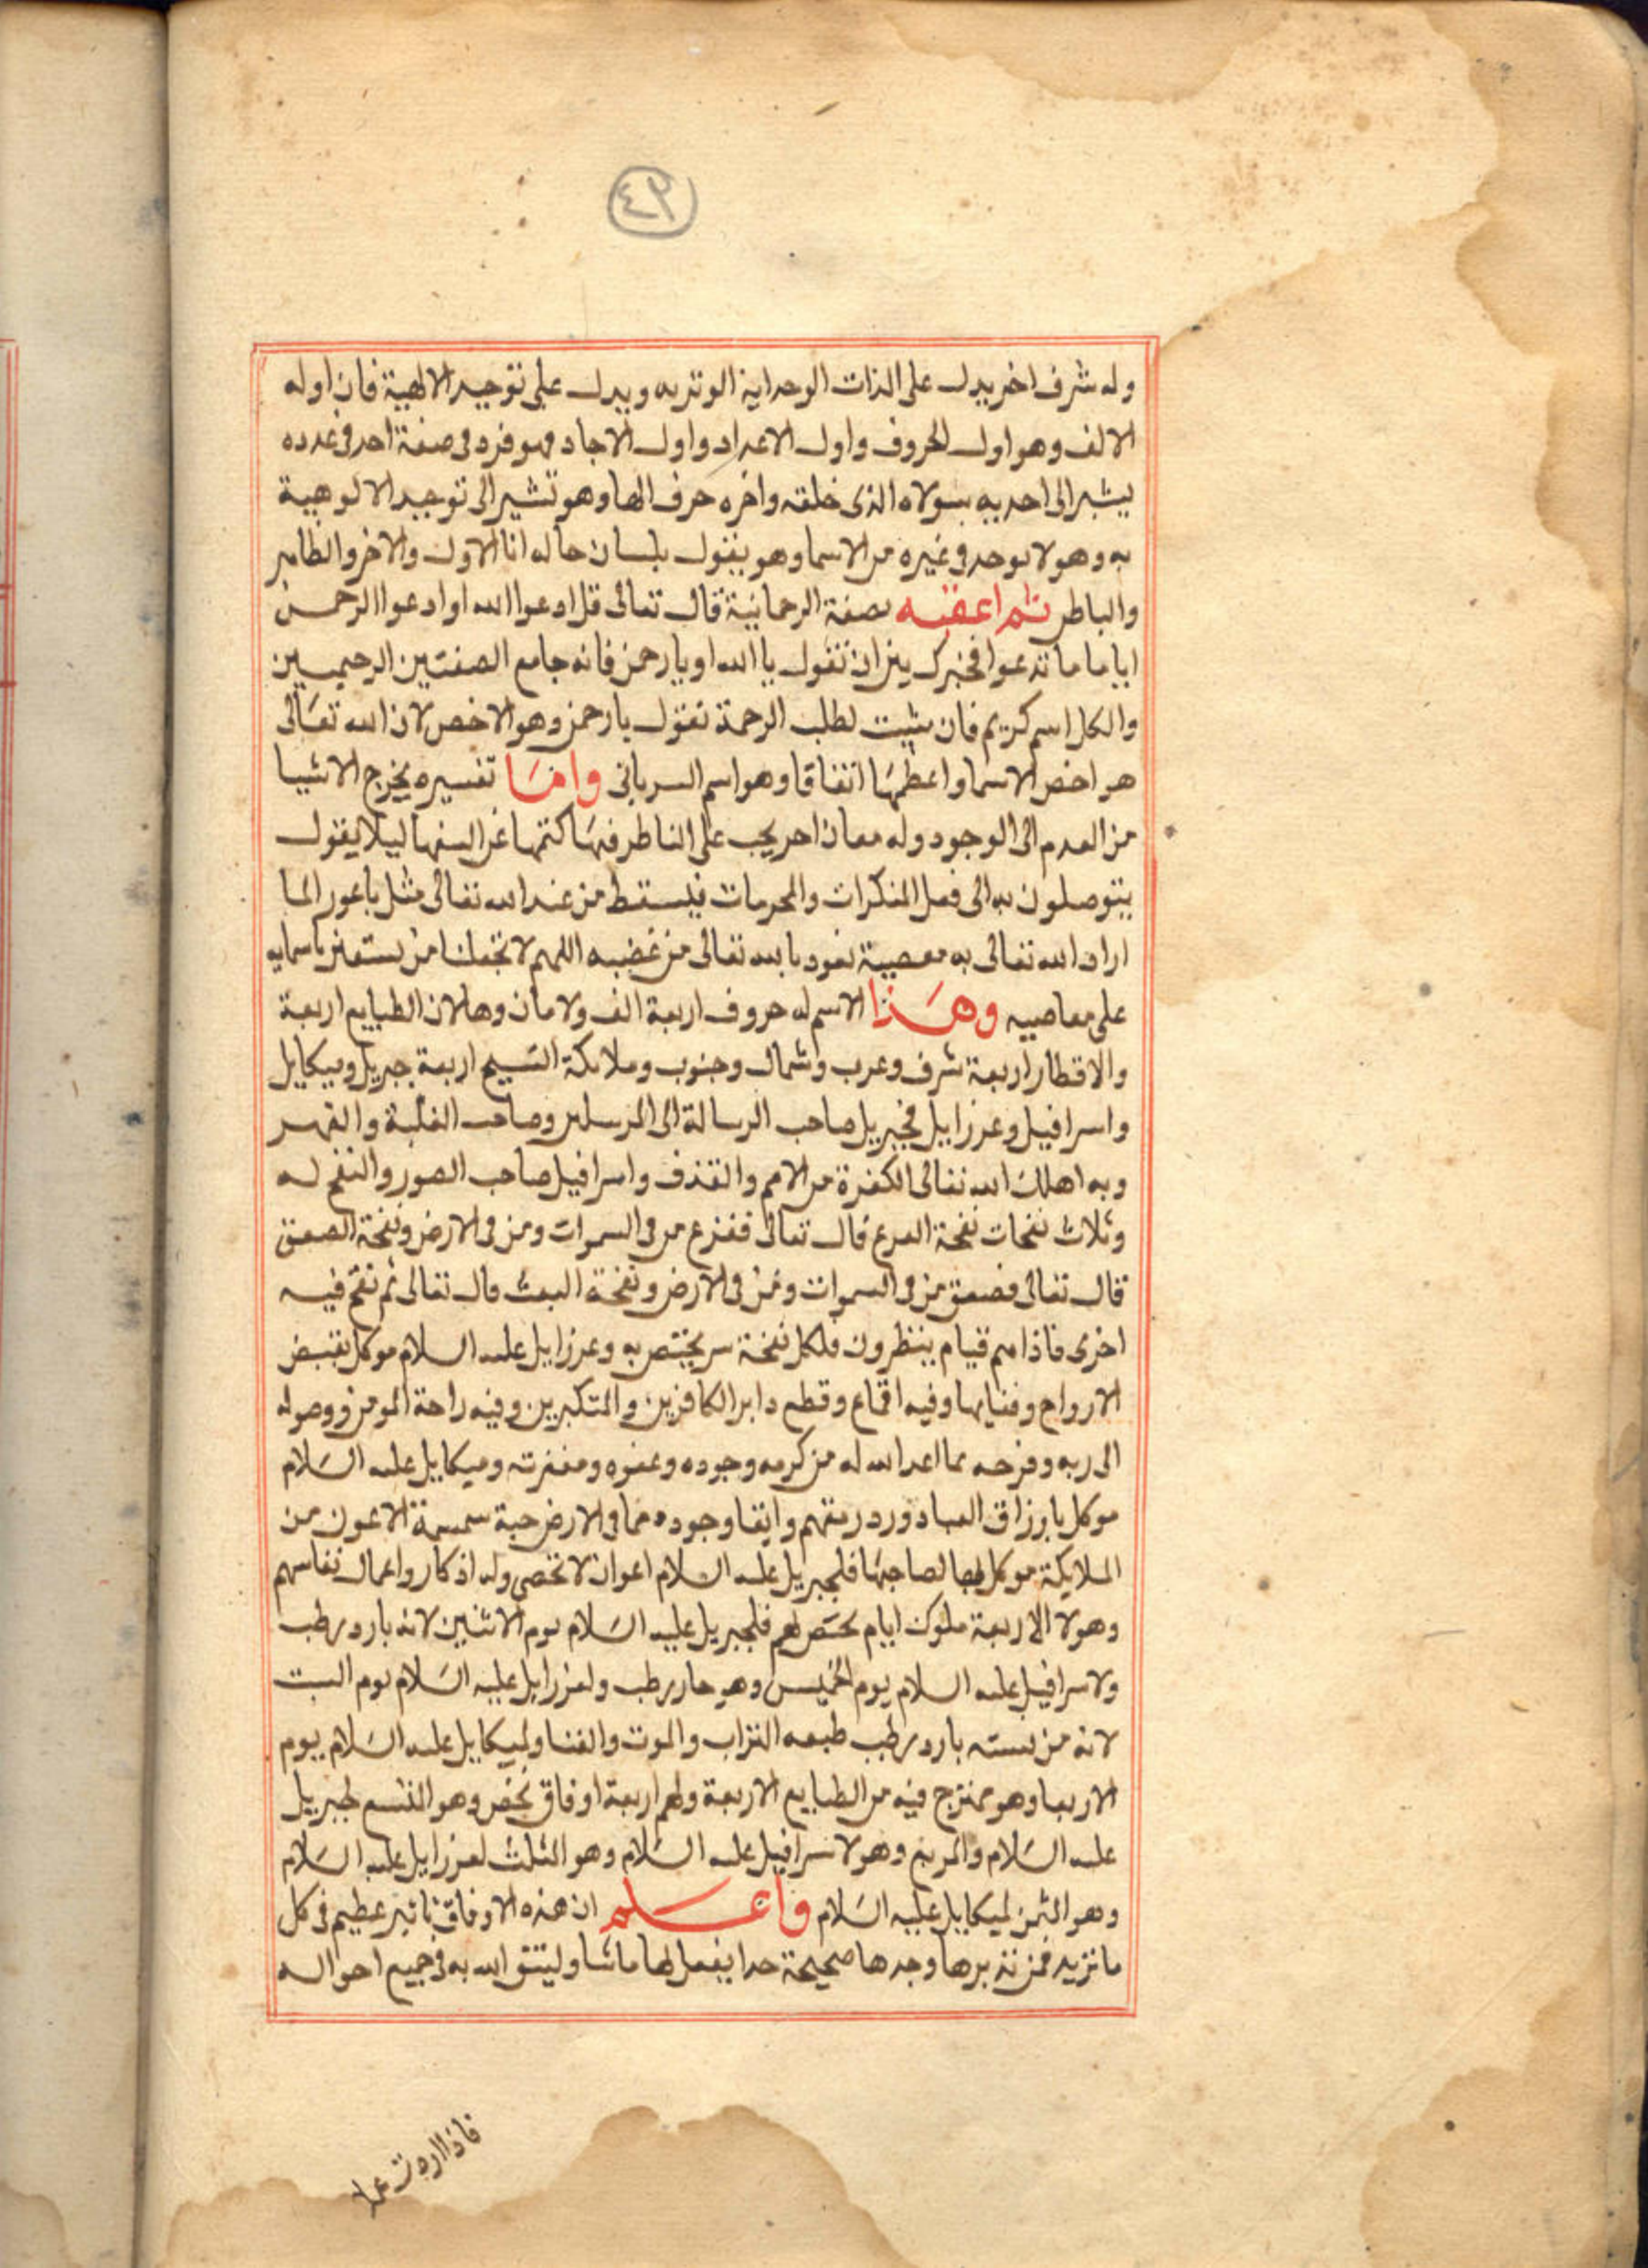 ٤٢
وله شرف اخر يدل على الذات الوحدانية الوتريه ويدل على توحيد الالهية فان اوله
الالف وهو اول الحروف واول الاعداد واول الاحاد فهو فرد فى صفة احد فى عدده
يشير الى احديه بسولاه الذى خلقه واخره حرف الها وهو تشير الى توحيد الالوهية
به وهو لا يوجد فى غيره من الاسما وهو يقول بلسان حاله انا الاول والاخر والظاهر
والباطن ثم اعقبه بصفة الرحمانية قال تعالى قل ادعوا الله او ادعوا الرحمن
ايا ما ما تدعوا فخيرك بين ان تقول يا الله او يا رحمن فانه جامع الصفتين الرحيميين
والكل اسم كريم فان شيت لطلب الرحمة تقول يا رحمن وهو الاخص لان الله تعالى
هو اخص الاسما واعظمها اتفاقا وهو اسم السريانى واما تفسيره يخرج الاشيا
من العدم الى الوجود وله معان اخر يجب على الناظر فيها كتمها عن السفها ليلا يقول
يتوصلون به الى فعل المنكرات والمحرمات فيسقط من عند الله تعالى مثل باعور الما
اراد الله تعالى به معصية نعود بالله تعالى من غضبه اللهم لا تجعلنا من يستعين باسمايه
على معاصيه وهذا الاسم له حروف اربعة الف ولامان وها لان الطبايع اربعة
والاقطار اربعة شرف وغرب وشمال وجنوب وملائكة التسبيح اربعة جبريل وميكايل
واسرافيل وعزرايل فجبريل صاحب الرسالة الى المرسلين وصاحب الغلبة والقهر
وبه اهلك الله تعالى الكفرة من الامم والقذف واسرافيل صاحب الصور والنفخ له
وثلاث نفخات نفخة الفزع قال تعالى ففزع من فى السموات ومن فى الارض ونفخة الصعق
قال تعالى فصعق من فى السموات ومن فى الارض ونفخة البعث قال تعالى ثم نفخ فيه
اخرى فاذا هم قيام ينظرون فلكل نفخة سر يختص به وعزرايل عليه السلام موكل بقبض
الارواح وفنايها وفيه اقماع وقطع دابر الكافرين والمتكبرين وفيه راحة المومن ووصوله
الى ربه وفرحه بما اعد الله له من كرمه وجوده وعفوه ومغفرته وميكايل عليه السلام
موكل بارزاق العباد ورد رمقهم وابقا وجوده فما فى الارض حبة سمسمة الا عون من
الملايكة موكل بها لصاحبها فلجبريل عليه السلام اعوان لا تحصى وله اذكار واعمال تقاسهم
وهولا الاربعة ملوك ايام تختص لهم فلجبريل عليه السلام يوم الاثنين لانه بارد رطب
ولاسرافيل عليه السلام يوم الخميس وهو حار رطب ولعزرايل عليه السلام يوم السبت
لانه من بسته بارد رطب طبعه التراب والموت والفنا ولميكايل عليه السلام يوم
الاربعا وهو ممتزج فيه من الطبايع الاربعة ولهم اربعة اوفاق تخص وهو المتسع لجبريل
عليه السلام والمربع وهو لاسرافيل عليه السلام وهو المثلث لعزرايل عليه السلام
وهو الثمن لميكايل عليه السلام واعلم ان هذه الاوفاق تاثير عظيم فى كل
ما تريد فمن تدبرها وجدها صحيحة جدا يفعل لها ماشا وليتق الله به فى جميع احواله
فاذا اردت عملا